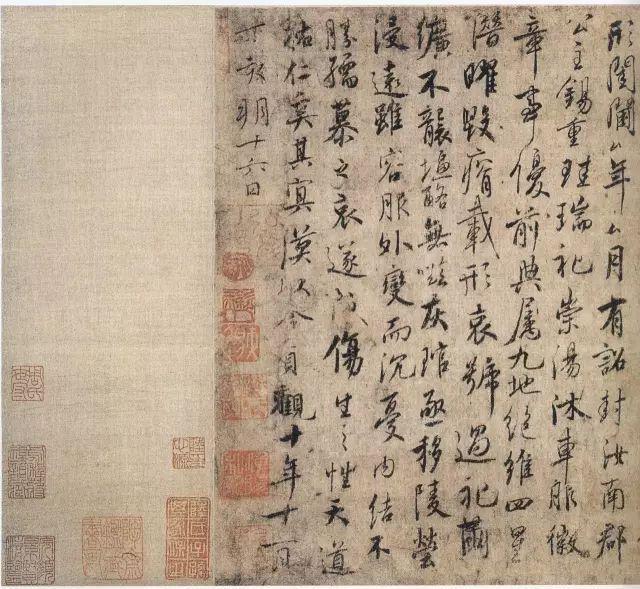 形閨閫厶年厶月有詔封汝南郡
公主錫重珪瑞礼崇湯沐車服徽
章事優前典屬九地絕維四星
潛曜毀瘠載形哀號過礼繭
纊不襲塩酪無嗞灰琯亟移陵塋
浸遠雖容服外變而沉憂内結不
勝孺慕之哀遂戕傷生之性天道
祐仁奚其冥漠以今貞觀十年十一月
丁亥朔十六日